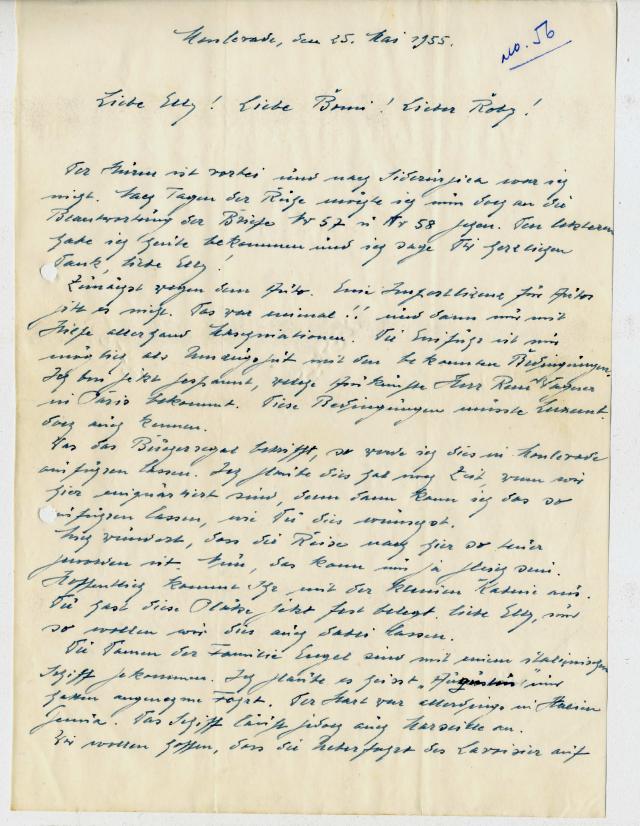 Monlevade, den 25. Mai 1955.
no. 56
Liebe Elly! Liebe Bomi! Lieber Roby!
Der Sturm ist vorbei und nach Siderúrgica war ich
nicht. Nach Tagen der Ruhe möchte ich nun doch an die
Beantwortung der Briefe Nr 57 u Nr 58 gehen. Den letzteren
habe ich heute bekommen und ich sage Dir herzlichen
Dank, liebe Elly!
Zunächst wegen dem Auto. Eine Importlizenz für Autos
gibt es nicht. Das war einmal!! und dann nur mit
Hilfe allerhand. Die Einfuhr ist nur
möglich als Umzugsgut mit den bekannten Bedingungen.
Ich bin jetzt gespannt, welche Auskünfte Herr René Wagner
in Paris bekommt. Diese Bedingungen müsste
doch auch kennen.
Was das Bücherregal betrifft, so werde ich dies in Monlevade
ausführen lassen. Ich glaube dies hat noch Zeit, wenn wir
hier einquartiert sind, denn dann kann ich das so
ausführen lassen, wie Du dies wünschst.
Mich wundert, dass die Reise nach hier so teuer
geworden ist. Nun, das kann uns ja gleich sein.
Hoffentlich kommt Ihr mit der kleinen Kabine aus.
Du hast diese Plätze jetzt fest belegt, liebe Elly, und
so wollen wir dies auch dabei lassen.
Die Damen der Familie Engel sind mit einem italienischen
Schiff gekommen. Ich glaube es heisst "Augustus" und
hatten angenehme Fahrt. Der Start war allerdings in Italien
Genua. Das Schiff läuft jedoch auch Marseille an.
Wir wollen hoffen, dass die Ueberfahrt des Lavoisier auf